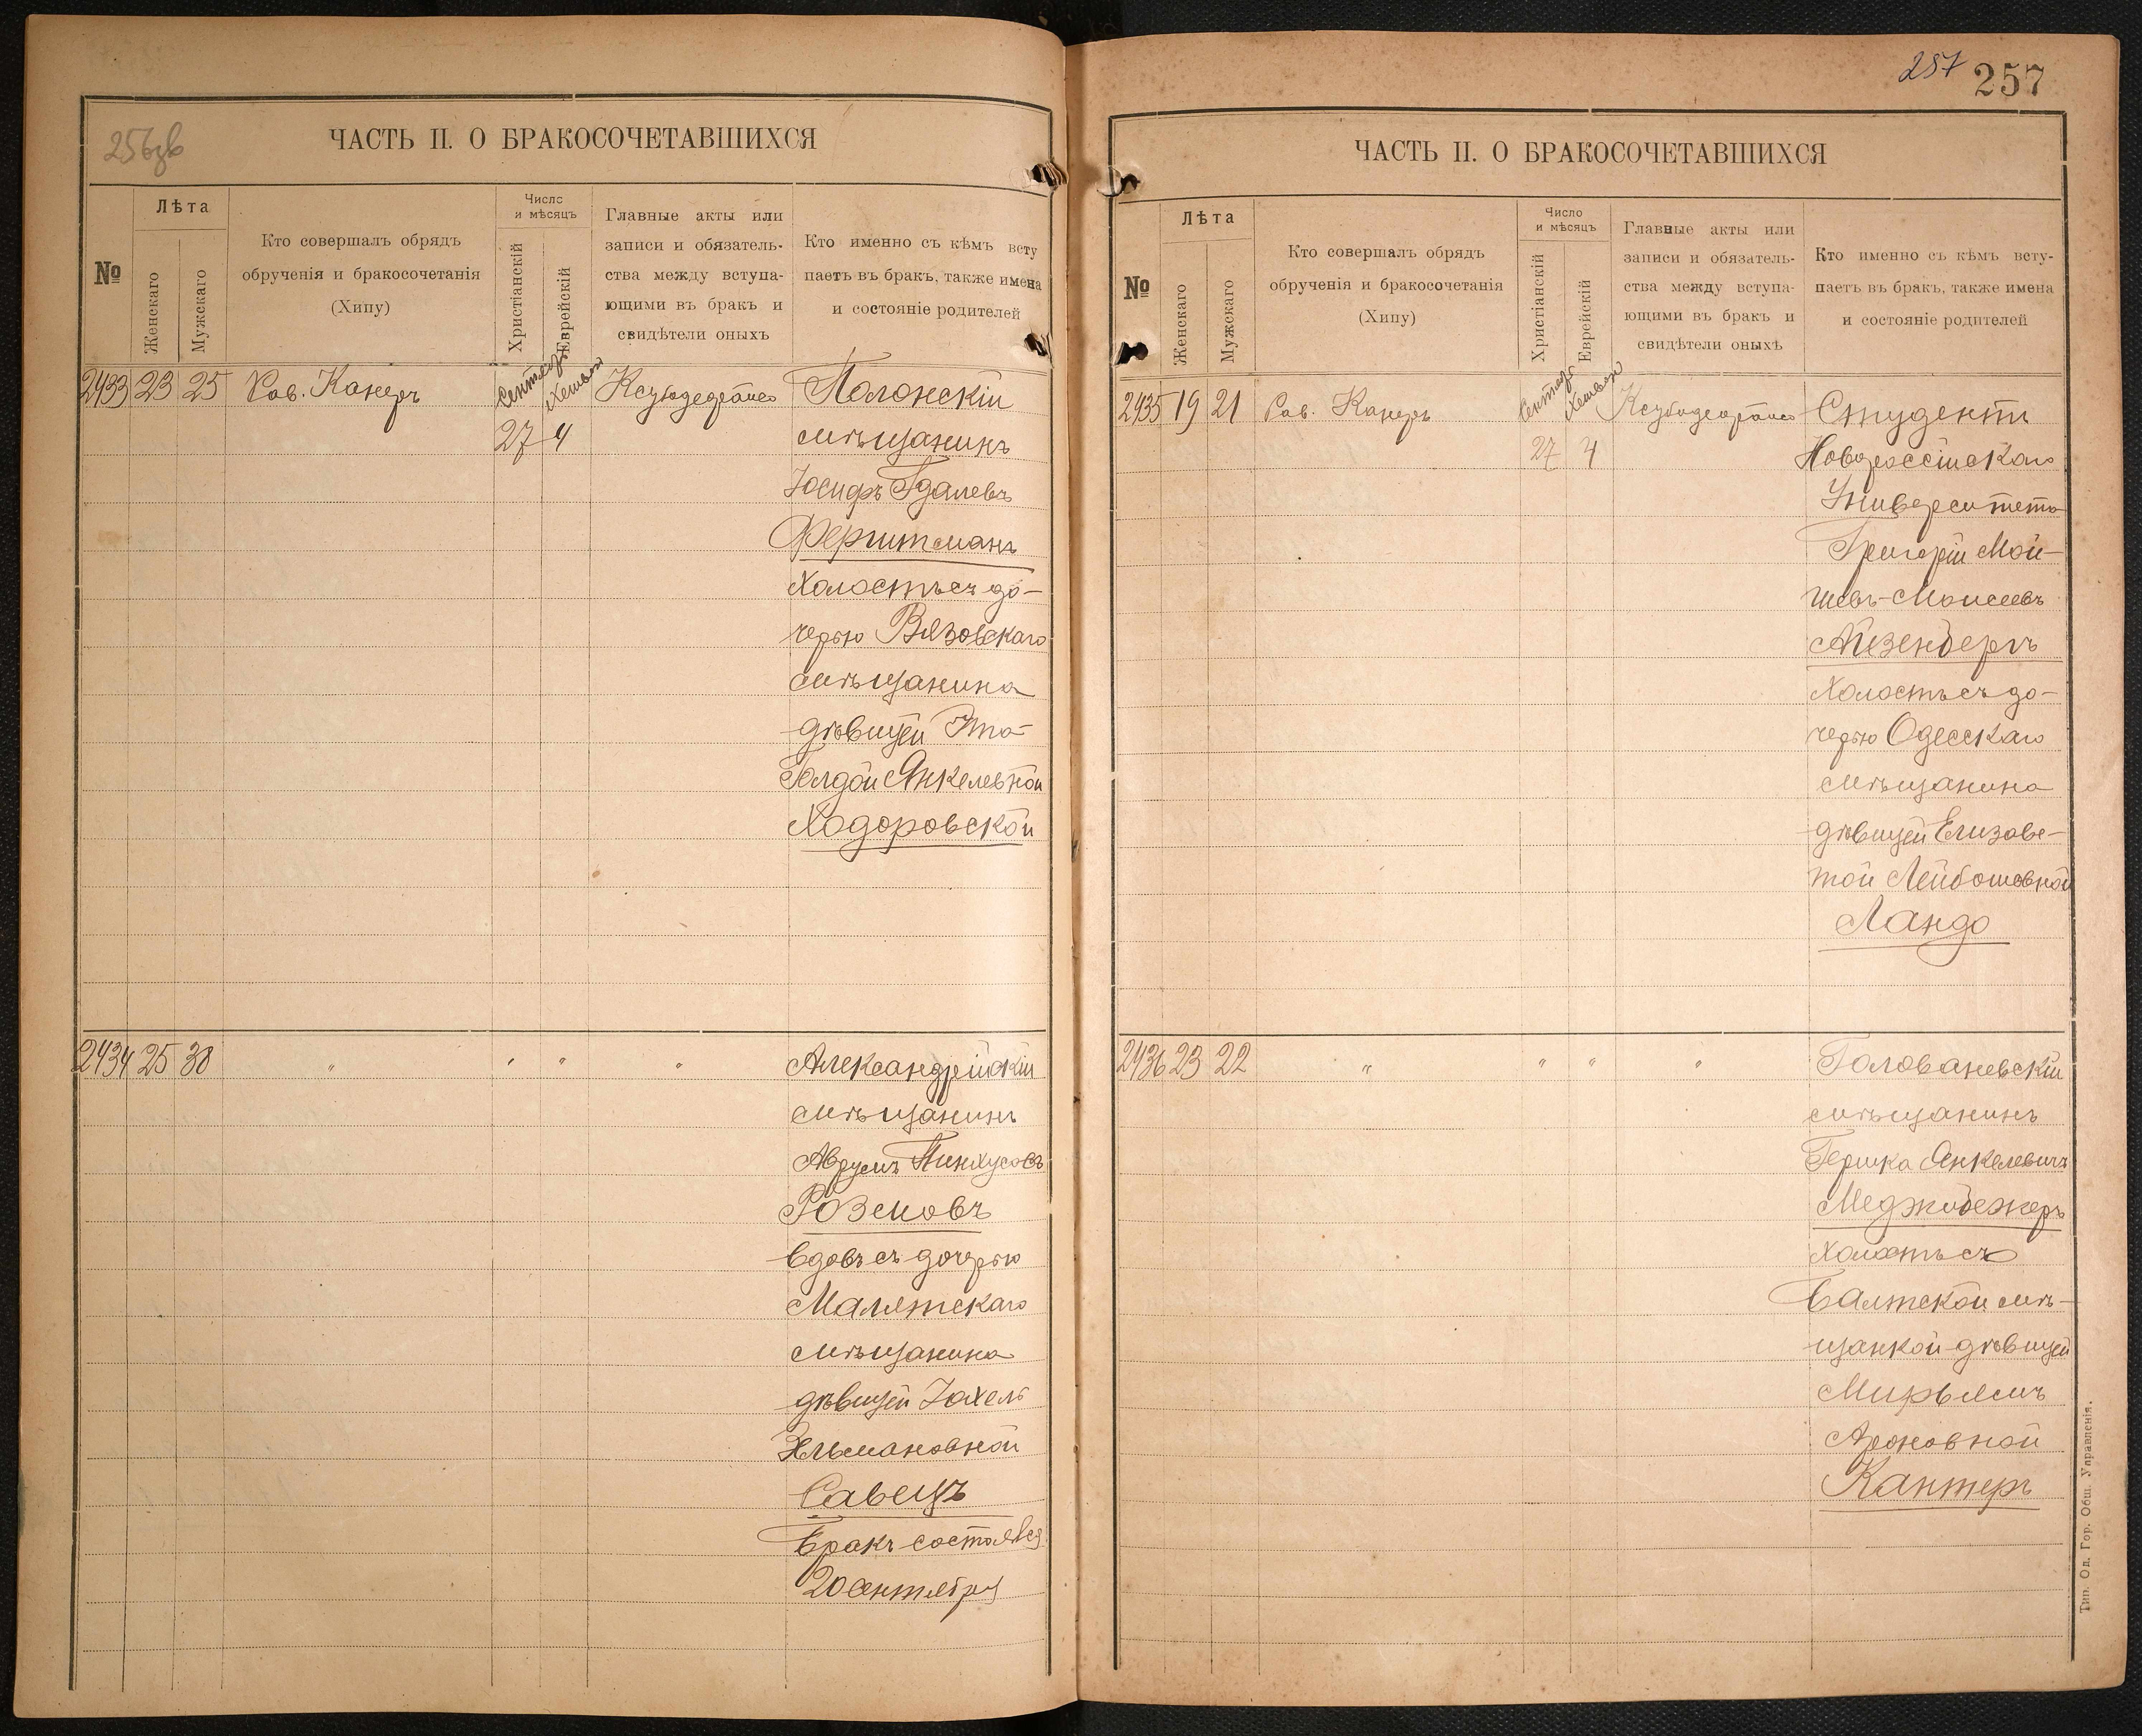 256зв
ЧАСТЬ II. О БРАКОСОЧЕТАВШИХСЯ
№
Лѣта
Женскаго
Мужскаго
Кто совершалъ обрядъ
обрученія и бракосочетанія
(Хипу)
Число
и мѣсяцъ
Христіанскій
Еврейскій
Главные акты или
записи и обязатель-
ства между вступа-
ющими въ бракъ и
свидѣтели оныхъ
Кто именно съ кѣмъ всту
паетъ въ бракъ, также имена
и состояніе родителей
2433 23 25 Рав. Канеръ
27 4
Полонскій
мѣщанинъ
Іосифъ Гдалевъ
Ферштманъ
Холостъ съ до-
черью Вязовскаго
мѣщанина
дѣвицей Эта-
Голдой Янкелевной
Ходоровской
2434 25 30 " " " "
Александрійскій
мѣщанинъ
Аврумъ Пинхусовъ
Розеновъ
Вдовъ съ дочерью
Малятскаго
мѣщанина
дѣвицей Іохель
Хльмановной
Савецъ
Бракъ состоялся
20 сентября
257 257
ЧАСТЬ II. О БРАКОСОЧЕТАВШИХСЯ
№
Лѣта
Женскаго
Мужскаго
Кто совершалъ обрядъ
обрученія и бракосочетанія
(Хипу)
Число
и мѣсяцъ
Христіанскій
Еврейскій
Главные акты или
записи и обязатель-
ства между вступа-
ющими въ бракъ и
свидѣтели оныхъ
Кто именно съ кѣмъ всту-
паетъ въ бракъ, также имена
и состояніе родителей
2435 19 21 Рав. Канеръ
27 4
Студентъ
Новороссійскаго
Университета
Григорій Мой-
шевъ-Моисеевъ
Айзенбергъ
Холостъ съ до-
черью Одесскаго
мѣщанина
дѣвицей Елизаве-
той Лейбошовной
Ландо
2436 23 22 " " " "
Голованевскій
мѣщанинъ
Гершка Янкелевичъ
Меджибежеръ
Холостъ съ
Балтской мѣ-
щанкой дѣвицей
Мирьямъ
Ароновной
Кантеръ
Тип. Од. Гор. Общ. Управленія.